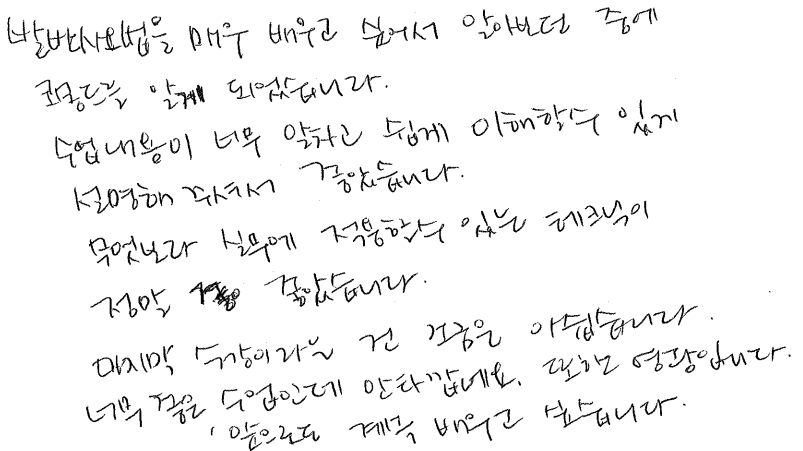 발반사요법을 매우 배우고 싶어서 알아보던 중에
알게 되었습니다.
수업내용이 너무 알차고 쉽게 이해할수 있게
설명해 주셔서 좋았습니다.
무엇보다 실무에 적용할수 있는 테크닉이
정말 좋았습니다.
마지막 수강이라는 건 조금은 아쉽습니다.
너무 좋은 수업인데 안타깝네요. 또한 영광입니다.
앞으로도 계속 배우고 싶습니다.